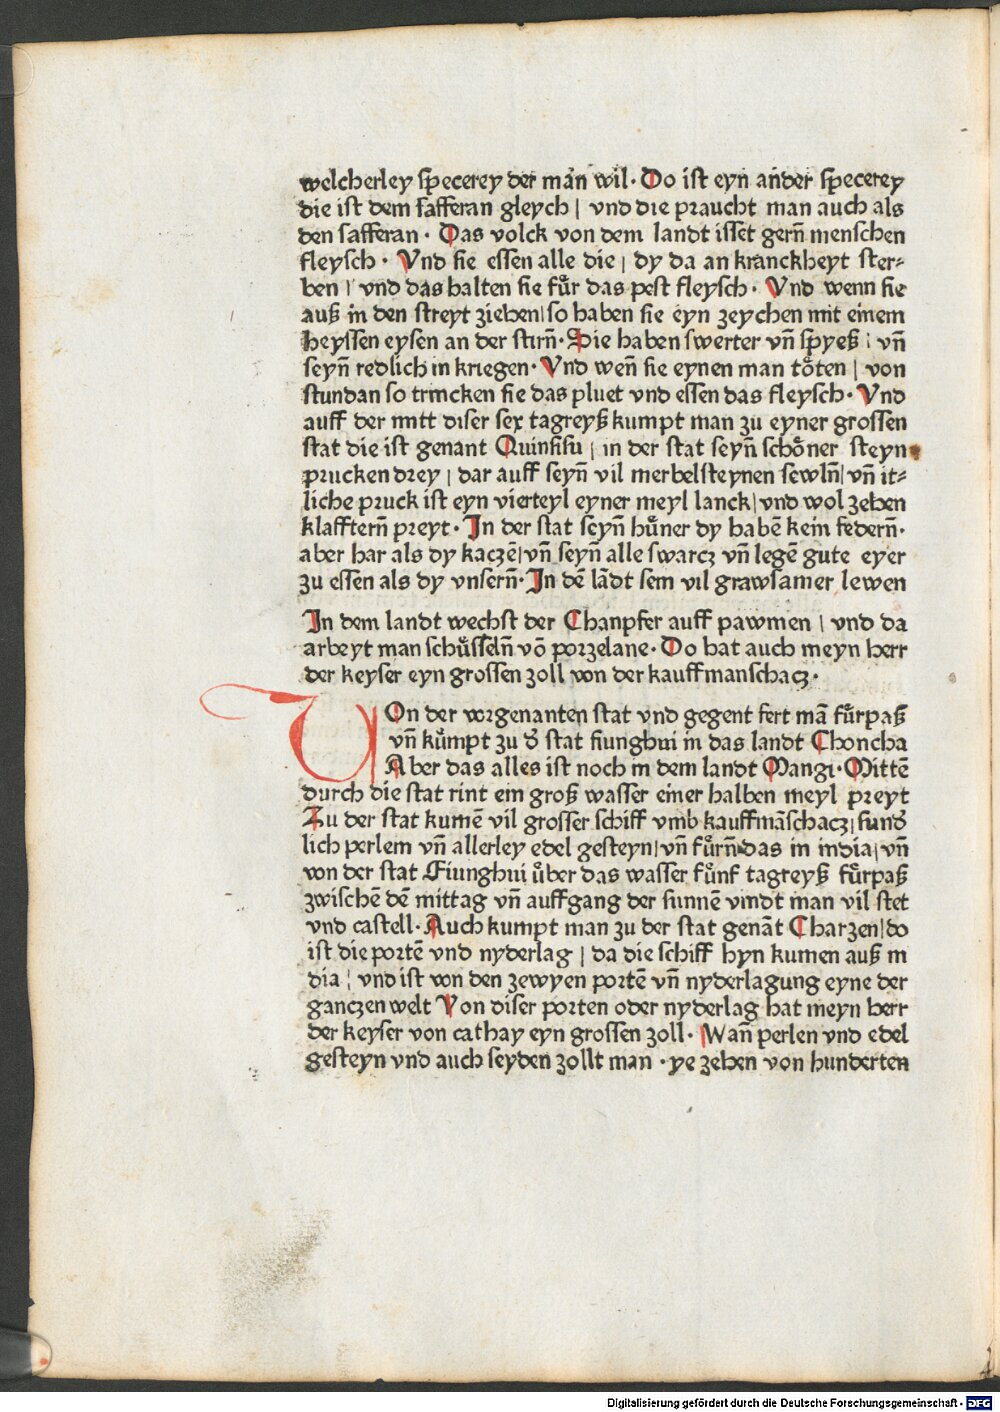 welcherley specerey der man wil · Do ist eyn ander specerey
die ist dem safferan gleych | vnd die praucht man auch als
den safferan · Das volck von dem landt isset gern̄ menschen
fleysch · Vnd sie essen alle die | dy da an kranckheyt ster⸗
ben | vnd das halten sie fu᷑r das pest fleysch · Vnd wenn sie
auß in den streyt ziehen | so haben sie eyn zeychen mit einem
heyssen eysen an der stirn̄ · Die haben swerter vn̄ spyeß | vn̄
seyn̄ redlich in kriegen · Vnd wen̄ sie eynen man to᷑ten | von
stundan so trincken sie das pluet vnd essen das fleysch · Vnd
auff der mitt diser sex tagreyß kumpt man zu eyner grossen
stat die ist genant Quinsisu | in der stat seyn̄ scho᷑ner steyn
prucken drey | dar auff seyn̄ vil merbelsteynen sewln̄ | vn̄ it⸗
liche pruck ist eyn vierteyl eyner meyl lanck | vnd wol zehen
klafftern̄ preyt · In der stat seyn̄ hu᷑ner dy habē kein federn̄ ·
aber har als dy kaczē | vn̄ seyn̄ alle swarcz vn̄ legē gute eyer
zu essen als dy vnsern̄ · In dē lādt sein vil grawsamer lewen
In dem landt wechst der Chanpfer auff pawmen | vnd da
arbeyt man schu᷑sseln̄ vō porzelane · Do hat auch meyn herr
der keyser eyn grossen zoll von der kauffmanschacz ·
VOn der vorgenanten stat vnd gegent fert mā fu᷑rpaß
vn̄ ku᷑mpt zu d̄ stat fiunghui in das landt Choncha
Aber das alles ist noch in dem landt Mangi · Mittē
durch die stat rint ein groß wasser einer halben meyl preyt
Zu der stat kumē vil grosser schiff vmb kauffmāschacz | sund̄
lich perlein vn̄ allerley edel gesteyn | vn̄ fu᷑rn̄ das in india | vn̄
von der stat Fiunghui u᷑ber das wasser fu᷑nf tagreyß fu᷑rpaß
zwischē dē mittag vn̄ auffgang der sunnē vindt man vil stet
vnd castell · Auch kumpt man zu der stat genāt Charzen | do
ist die portē vnd nyderlag | da die schiff hyn kumen auß in
dia | vnd ist von den zewyen portē vn̄ nyderlagung eyne der
ganczen welt Von diser porten oder nyderlag hat meyn herr
der keyser von cathay eyn grossen zoll · Wan̄ perlen vnd edel
gesteyn vnd auch seyden zollt man · ye zehen von hunderten
Digitalisierung gefördert durch die Deutsche Forschungsgemeinschaft - DFG